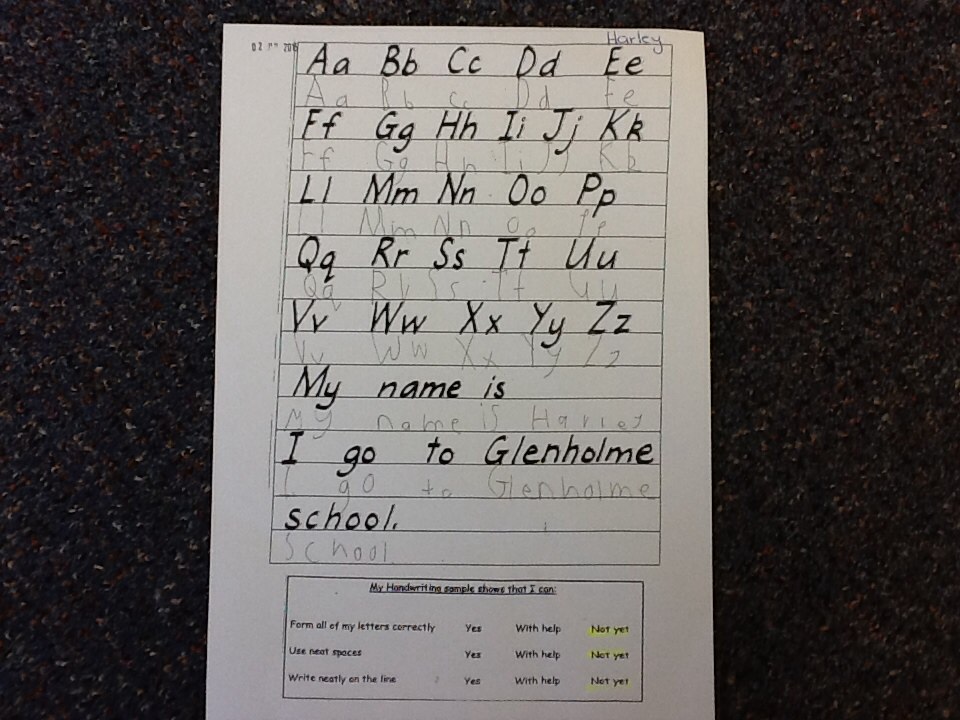 Harley
Aa Bb Cc Dd Ee
Aa Bb Cc Dd Ee
Ff Gg Hh Ii Jj Kk
Ff Gg Hh Ii Jj Kk
Ll Mm Nn Oo Pp
Ll Mm Nn Oo Pp
Qq Rr Ss Tt Uu
Qq Rr Ss Tt Uu
Vv Ww Xx Yy Zz
Vv Ww Xx Yy Zz
My name is
My name is Harley
I go to Glenholme
I go to Glenholme
school.
School
My Handwriting sample shows that I can:
Form all of my letters correctly Yes With help Not yet
Use neat spaces Yes With help Not yet
Write neatly on the line Yes With help Not yet